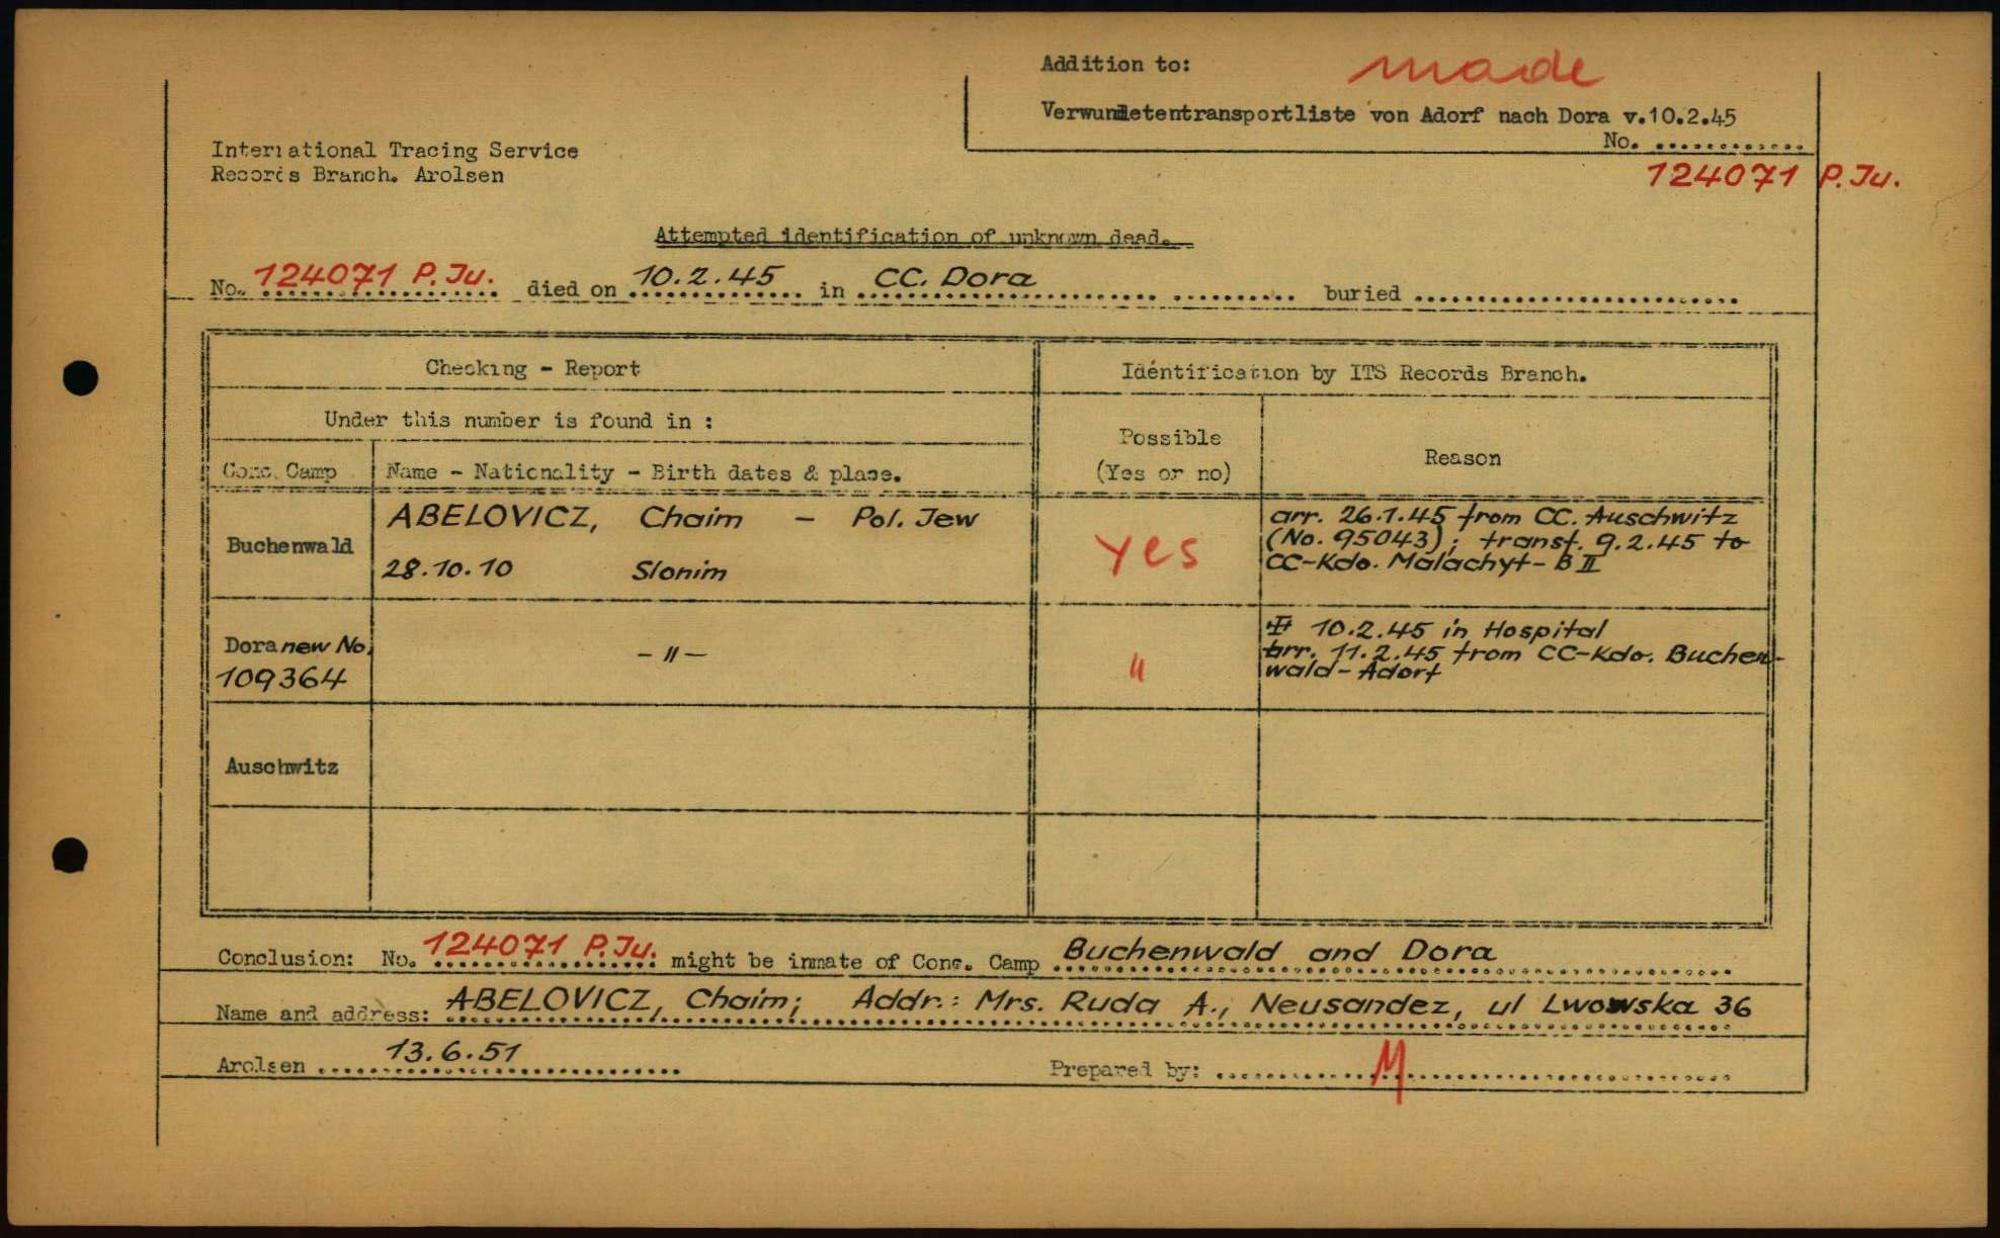 Addition to: made
Verwundetentransportliste von Adorf nach Dora v.10.2.45
No. ............
124071 P.Ju.
International Tracing Service
Records Branch. Arolsen
Attempted identification of unknown dead.
No. 124071 P.Ju. died on 10.2.45 in CC. Dora buried
Checking - Report
Identification by ITS Records Branch.
Under this number is found in :
Possible
(Yes or no)
Reason
Conc. Camp
Name - Nationality - Birth dates & place.
Buchenwald
ABELOVICZ, Chaim - Pol. Jew
28.10.10 Slonim
yes
arr. 26.1.45 from CC. Auschwitz
(No. 95043); transf. 9.2.45 to
CC-Kdo. Malachyt - B II
Dora new No.
109364
- " -
"
10.2.45 in Hospital
arr. 11.2.45 from CC-Kdo. Buchen-
wald - Adorf
Auschwitz
Conclusion: No. 124071 P.Ju. might be inmate of Conc. Camp Buchenwald and Dora
Name and address: ABELOVICZ, Chaim; Addr.: Mrs. Ruda A., Neusandez, ul Lwowska 36
Arolsen 13.6.51
Prepared by: M